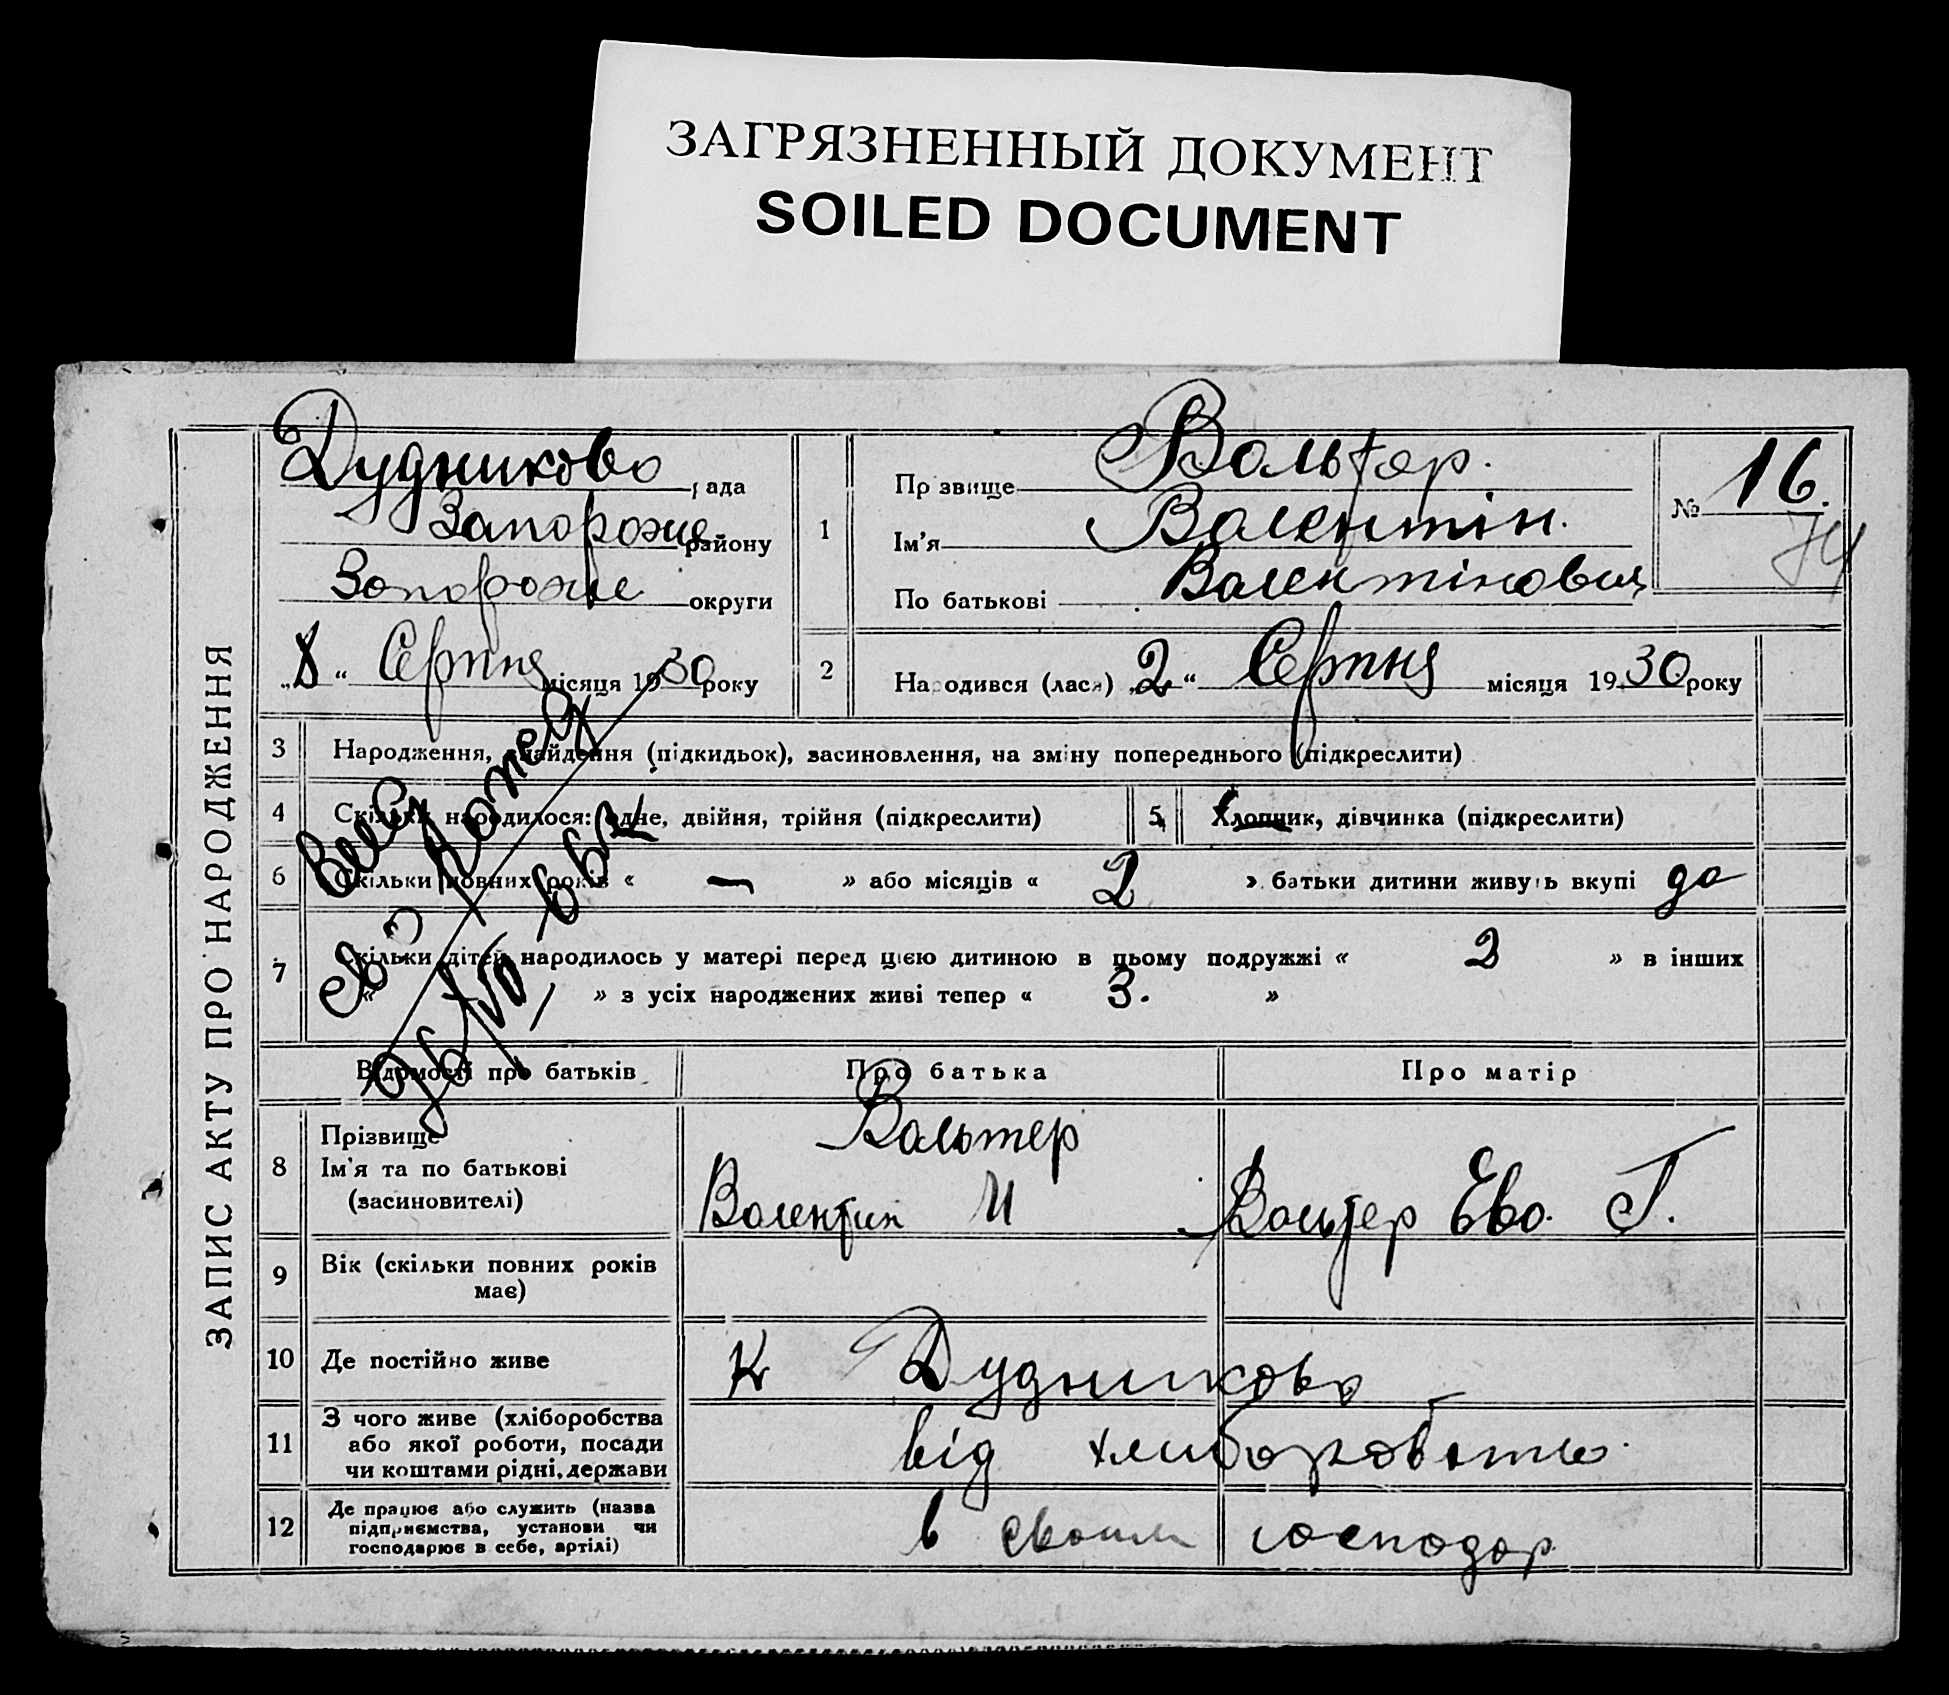 ЗАГРЯЗНЕННЫЙ ДОКУМЕНТ
SOILED DOCUMENT
ЗАПИС АКТУ ПРО НАРОДЖЕННЯ
Дудниково рада
Запорожже району
Запороже округи
„8“ Серпня місяця 1930 року
1
Прізвище Вальтер.
Ім'я Валентін.
По батькові Валентінович
№ 16.
74
2
Народився (лася) „2“ Серпня місяця 1930 року
3 Народження, знайдення (підкидьок), засиновлення, на зміну попереднього (підкреслити)
4 Скільки народилося: одне, двійня, трійня (підкреслити)
5 Хлопчик, дівчинка (підкреслити)
6 Скільки повних років « — » або місяців « 2 » батьки дитини живуть вкупі да
7 Скільки дітей народилось у матері перед цією дитиною в цьому подружжі « 2 » в інших
« » з усіх народжених живі тепер « 3. »
Відомості про батьків Про батька Про матір
8 Прізвище
Ім'я та по батькові
(засиновителі)
Вальтер
Валентин И
Вальтер Ева. Г.
9 Вік (скільки повних років
має)
10 Де постійно живе К Дудниково
11 З чого живе (хліборобства
або якої роботи, посади
чи коштами рідні, держави
від
12 Де працює або служить (назва
підприємства, установи чи
господарює в себе, артілі)
в своим господар